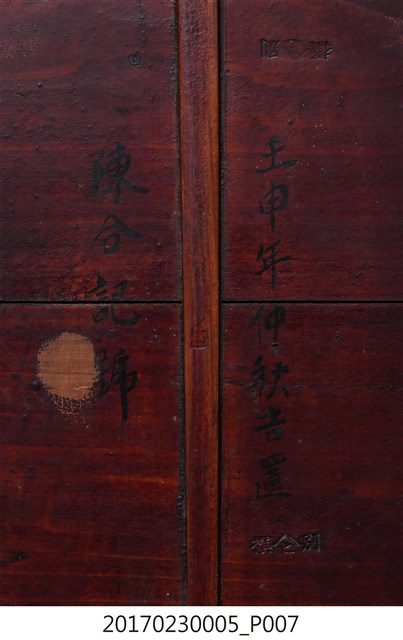 壬申年仲秋吉置
陳合記號
20170230005_P007